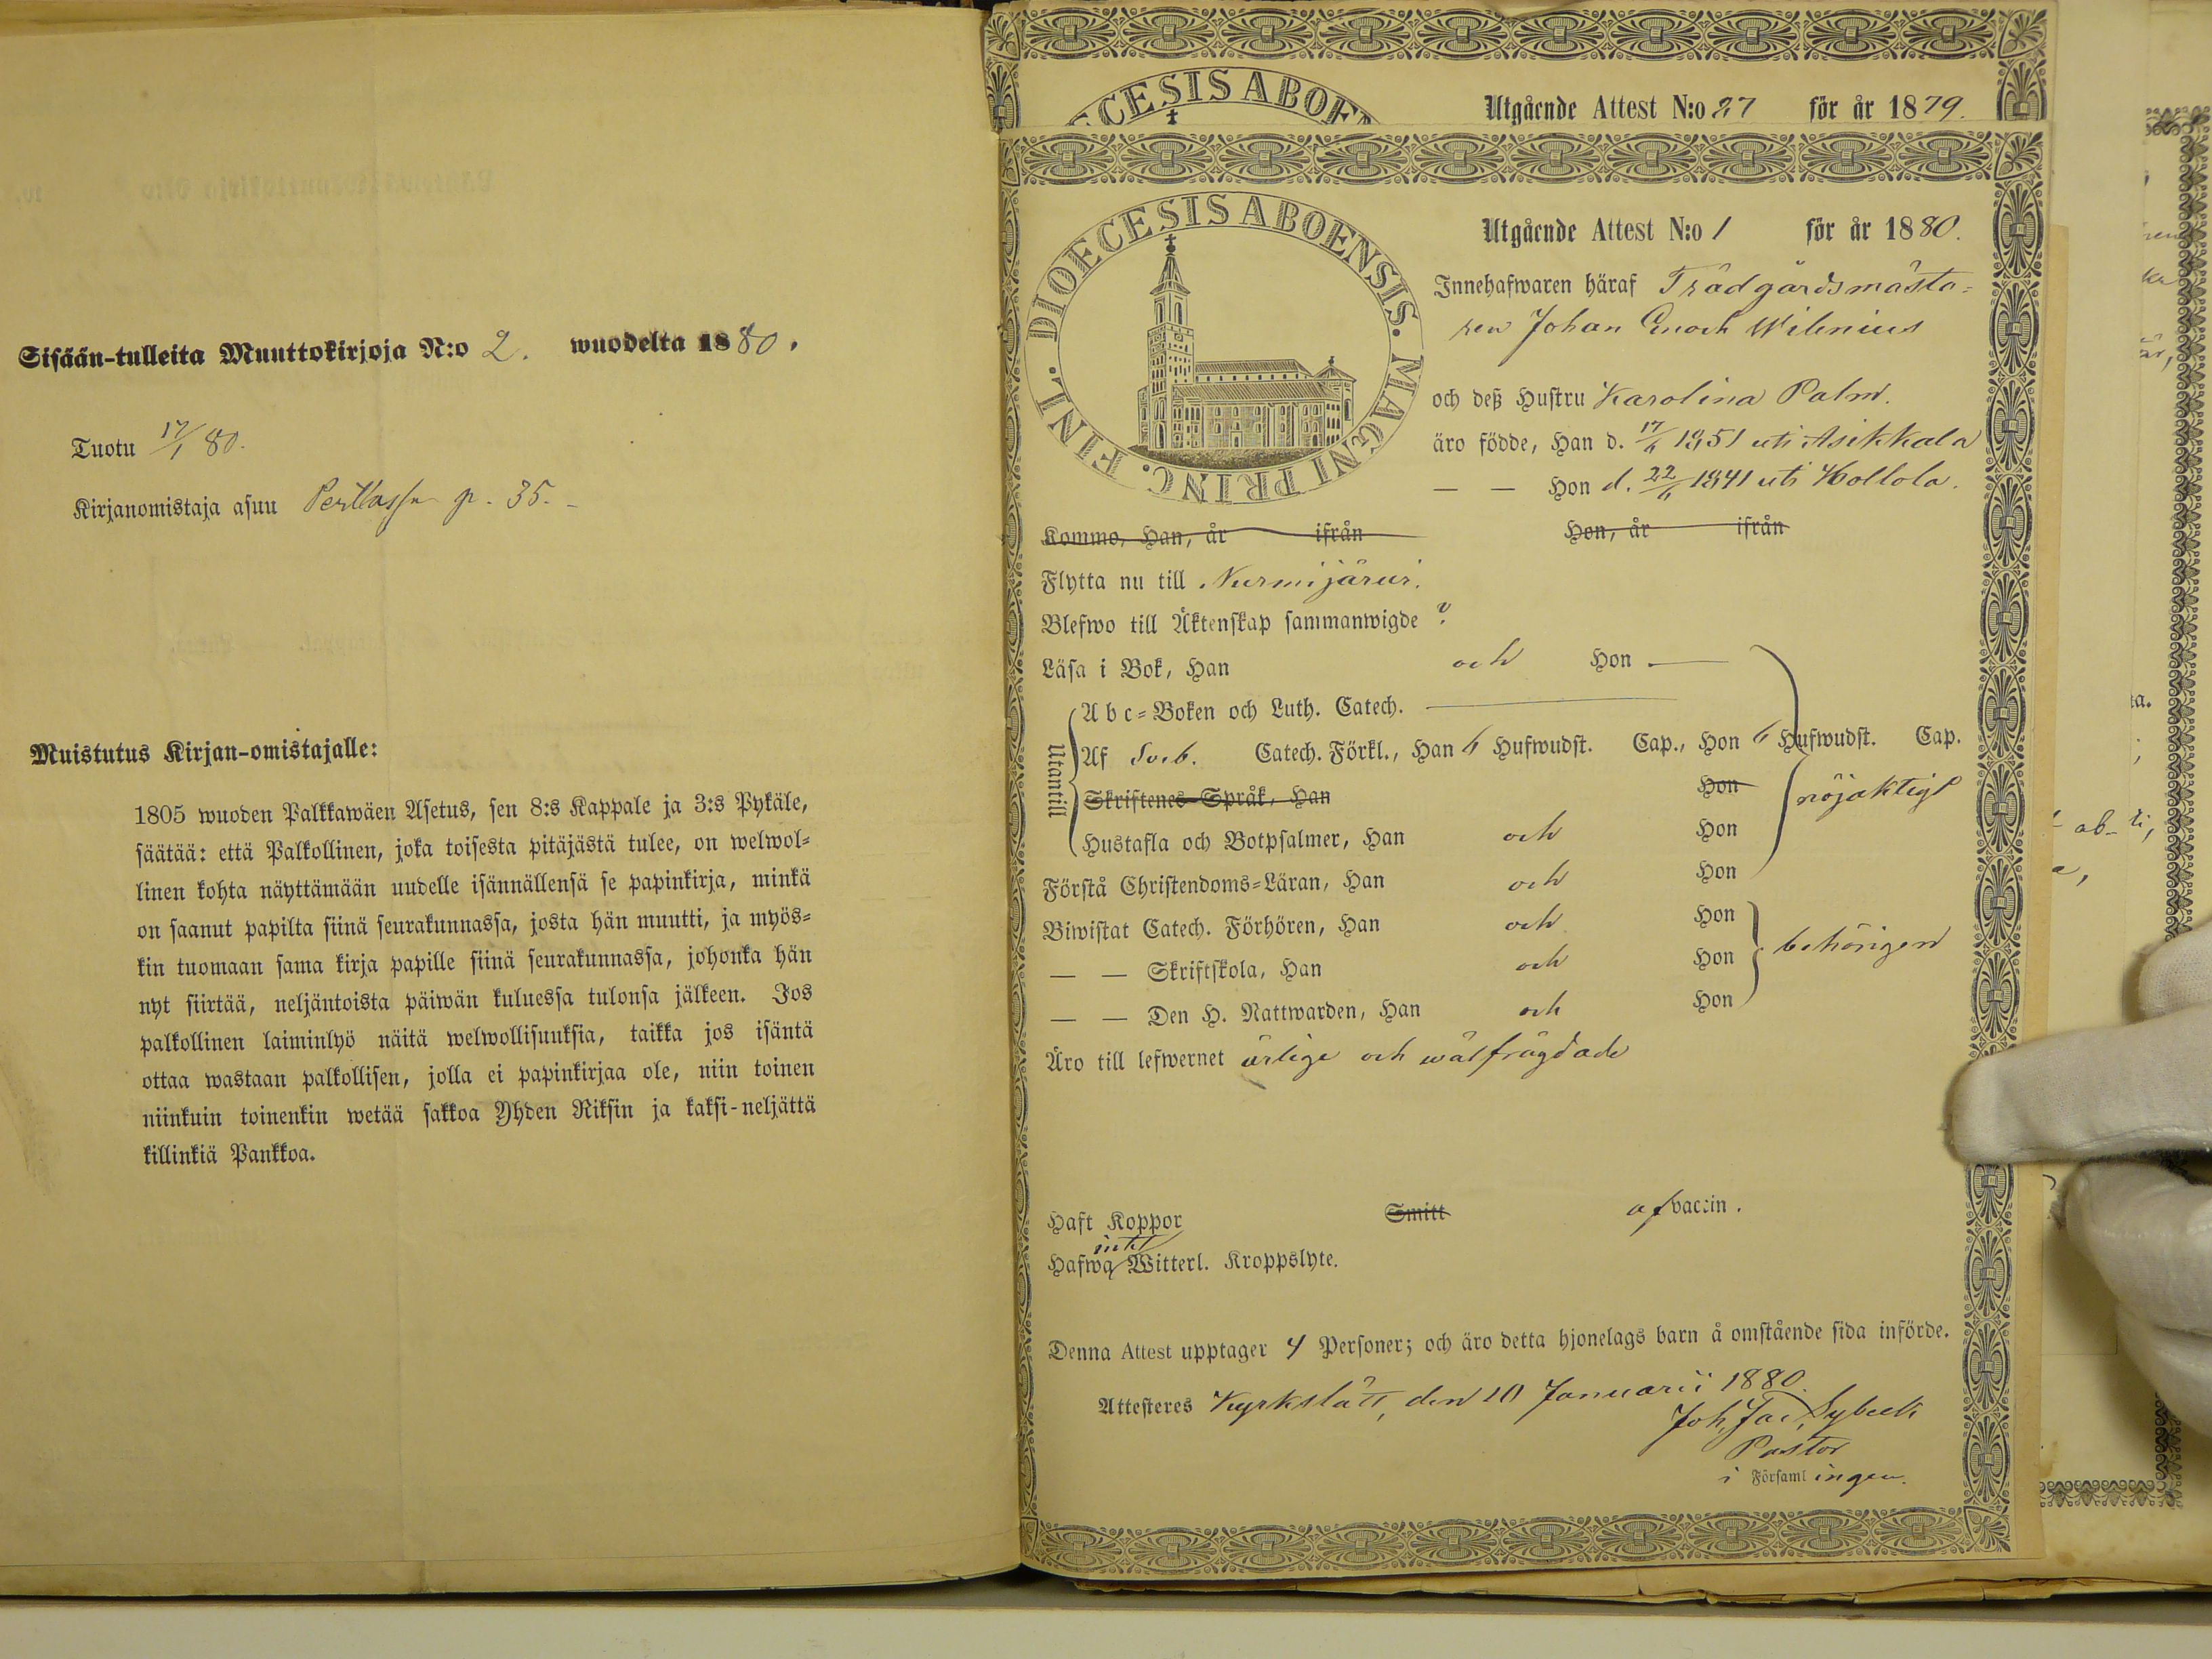 Sisään-tulleita Muuttokirjoja N:o 2. wuodelta 1880.
Tuotu 17/1 80.
Kirjanomistaja asuu p. 35.
Muistutus Kirjan-omistajalle:
1805 wuoden Palkkawäen Asetus, sen 8:s Kappale ja 3:s Pykäle,
säätää: että Palkollinen, joka toisesta pitäjästä tulee, on welwol=
linen kohta näyttämään uudelle isännällensä se papinkirja, minkä
on saanut papilta siinä seurakunnassa, josta hän muutti, ja myös=
kin tuomaan sama kirja papille siinä seurakunnassa, johonka hän
nyt siirtää, neljäntoista päiwän kuluessa tulonsa jälkeen. Jos
palkollinen laiminlyö näitä welwollisuuksia, taikka jos isäntä
ottaa wastaan palkollisen, jolla ei papinkirjaa ole, niin toinen
niinkuin toinenkin wetää sakkoa Yhden Riksin ja kaksi-neljättä
killinkiä Pankkoa.
CESIS ABOEN
Utgående Attest N:o 27 för år 1879.
DIOECESIS ABOENSIS. MAGNI PRINC. FINL.
Utgående Attest N:o 1 för år 1880.
Innehafwaren häraf Trädgårdsmästa=
ren Johan Enoch Wilenius
och deß Hustru Karolina Palm.
äro födde, Han d. 17/6 1851 uti Asikkala
— — Hon d. 22/6 1841 uti Hollola.
Kommo, Han, år ifrån Hon, år ifrån
Flytta nu till Nurmijärvi.
Blefwo till Äktenskap sammanwigde ?
Läsa i Bok, Han och Hon —
Utantill
Abc=Boken och Luth. Catech.
Af Sveb. Catech. Förkl., Han 6 Hufwudst. Cap., Hon 6 Hufwudst. Cap.
Skriftenes Språk, Han Hon nöjaktigt
Hustafla och Botpsalmer, Han och Hon
Förstå Christendoms=Läran, Han och Hon
Biwistat Catech. Förhören, Han och Hon
— — Skriftskola, Han och Hon behörigen
— — Den H. Nattwarden, Han och Hon
Äro till lefwernet ärlige och wälfrägdade
Haft Koppor Smitt af vaccin.
Hafwa intet Witterl. Kroppslyte.
Denna Attest upptager 4 Personer; och äro detta hjonelags barn å omstående sida införde.
Attesteres Kyrkslätt, den 10 Januarii 1880.
Joh. Jac. Sybeck
Pastor
i Församlingen.